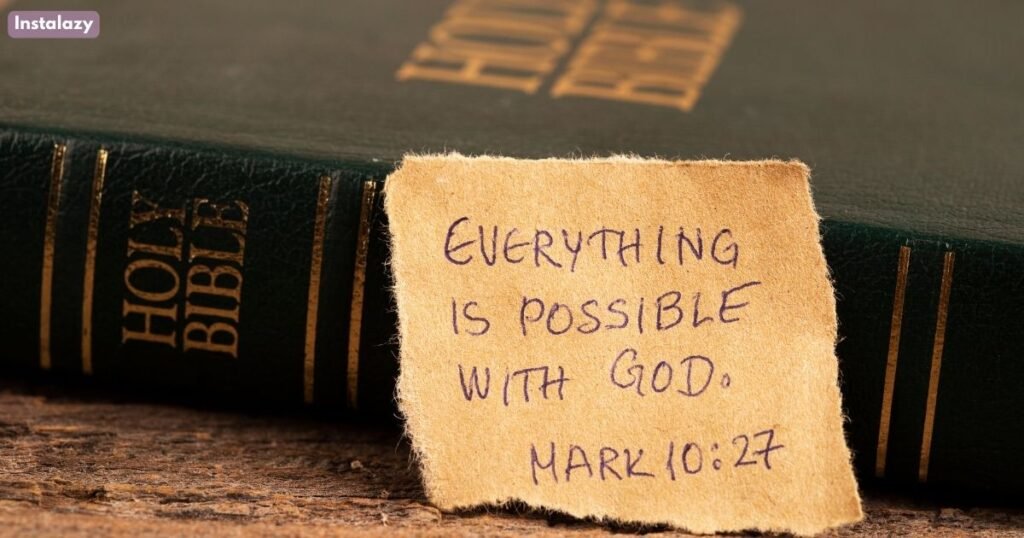 Instalazy
HOLY
BIBLE
HOLY
BIBLE
EVERYTHING
IS POSSIBLE
WITH GOD.
MARK 10:27